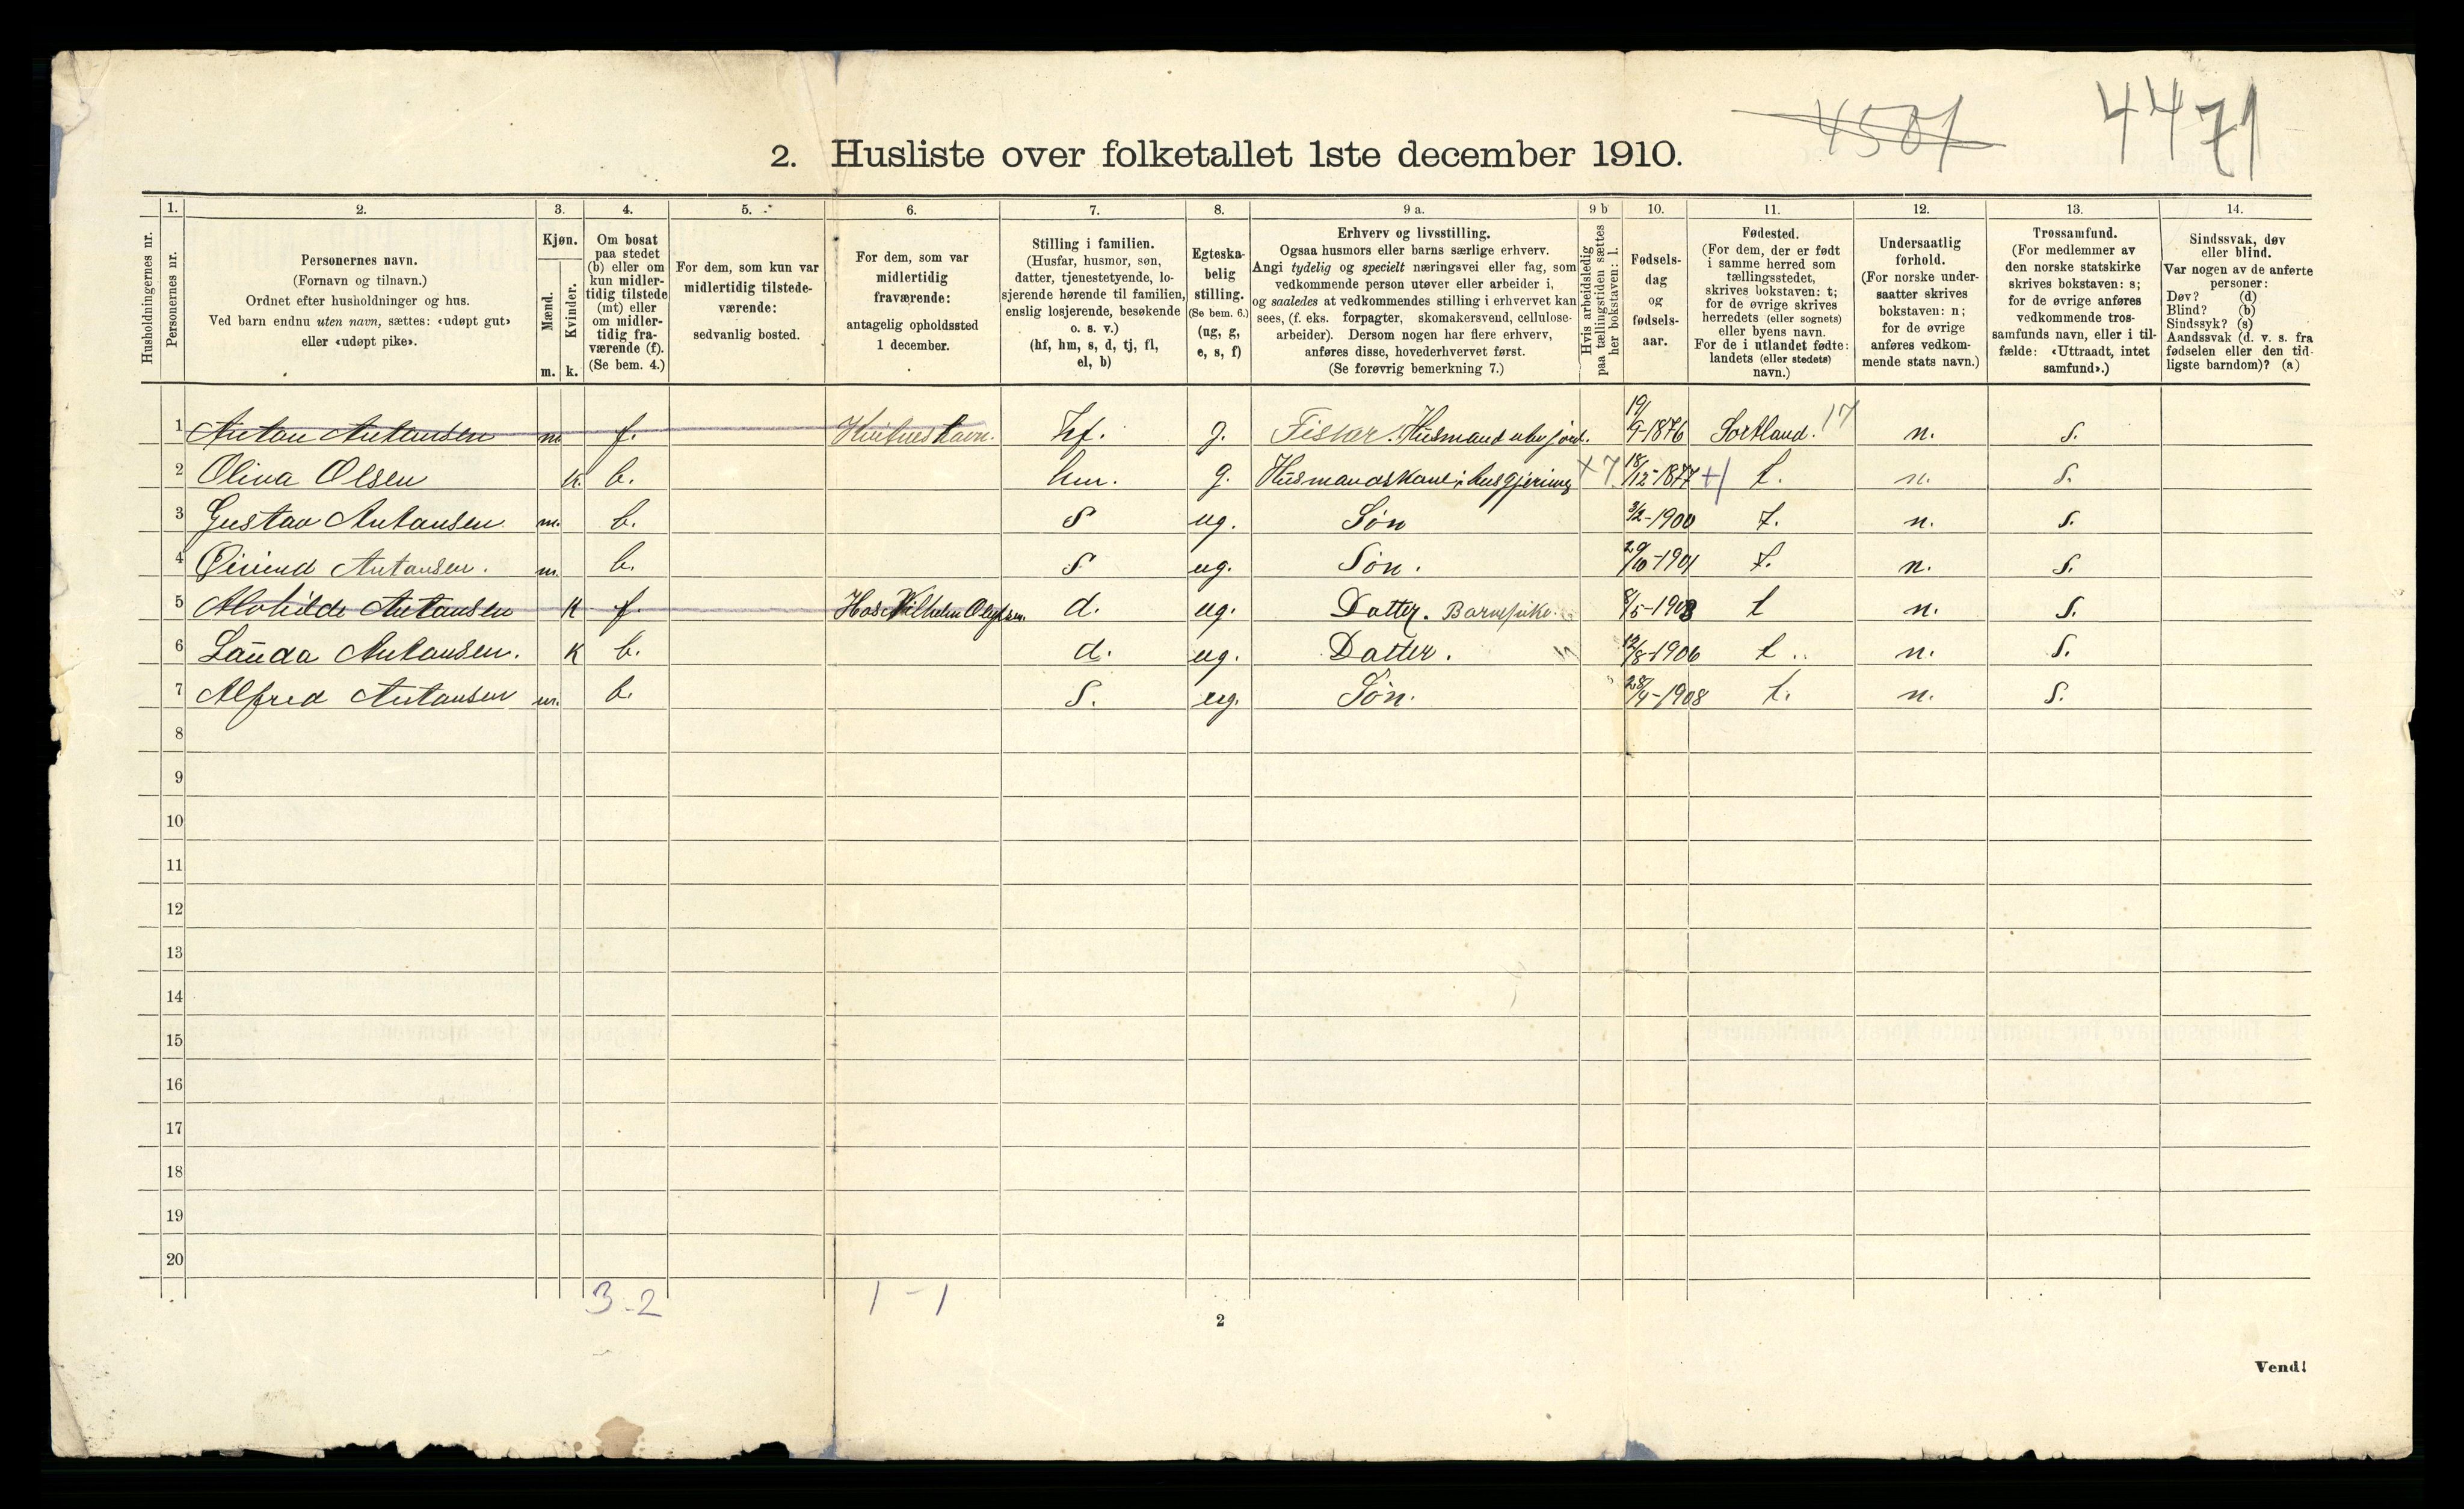 4501 4471
2. Husliste over folketallet 1ste december 1910.
Husholdningernes nr.
1.
Personernes nr.
2.
Personernes navn.
(Fornavn og tilnavn.)
Ordnet efter husholdninger og hus.
Ved barn endnu uten navn, sættes: «udøpt gut»
eller «udøpt pike».
3.
Kjøn.
Mænd.
Kvinder.
m. k.
4.
Om bosat
paa stedet
(b) eller om
kun midler-
tidig tilstede
(mt) eller
om midler-
tidig fra-
værende (f).
(Se bem. 4.)
5.
For dem, som kun var
midlertidig tilstede-
værende:
sedvanlig bosted.
6.
For dem, som var
midlertidig
fraværende:
antagelig opholdssted
1 december.
7.
Stilling i familien.
(Husfar, husmor, søn,
datter, tjenestetyende, lo-
sjerende hørende til familien,
enslig losjerende, besøkende
o. s. v.)
(hf, hm, s, d, tj, fl,
el, b)
8.
Egteska-
belig
stilling.
(Se bem. 6.)
(ug, g,
e, s, f)
9 a.
Erhverv og livsstilling.
Ogsaa husmors eller barns særlige erhverv.
Angi tydelig og specielt næringsvei eller fag, som
vedkommende person utøver eller arbeider i,
og saaledes at vedkommendes stilling i erhvervet kan
sees, (f. eks. forpagter, skomakersvend, cellulose-
arbeider). Dersom nogen har flere erhverv,
anføres disse, hovederhvervet først.
(Se forøvrig bemerkning 7.)
9 b
Hvis arbeidsledig
paa tællingstiden sættes
her bokstaven: l.
10.
Fødsels-
dag
og
fødsels-
aar.
11.
Fødested.
(For dem, der er født
i samme herred som
tællingsstedet,
skrives bokstaven: t;
for de øvrige skrives
herredets (eller sognets)
eller byens navn.
For de i utlandet fødte:
landets (eller stedets)
navn.)
12.
Undersaatlig
forhold.
(For norske under-
saatter skrives
bokstaven: n;
for de øvrige
anføres vedkom-
mende stats navn.)
13.
Trossamfund.
(For medlemmer av
den norske statskirke
skrives bokstaven: s;
for de øvrige anføres
vedkommende tros-
samfunds navn, eller i til-
fælde: «Uttraadt, intet
samfund».)
14.
Sindssvak, døv
eller blind.
Var nogen av de anførte
personer:
Døv? (d)
Blind? (b)
Sindssyk? (s)
Aandssvak (d. v. s. fra
fødselen eller den tid-
ligste barndom)? (a)
1 Anton Antonsen m. f. hf. g. Fisker. Husmand uten jord. 19/9-1876 Sortland. 17 n. s.
2 Oliva Olsen k. b. hm. g. Husmandskone i husgjerning 18/12-1877 t. n. s.
3 Gustav Antonsen m. b. s ug. Søn 3/2-1900 t. n. s.
4 Øivind Antonsen. m. b. s ug. Søn. 29/10-1901 t. n. s.
5 Alvhilde Antonsen k f. Hos Vilhelm d. ug. Datter. Barnepike. 8/5-1903 t n. s.
6 Lauda Antonsen. k b. d. ug. Datter. 12/8-1906 t. n. s.
7 Alfred Antonsen m. b. s. ug. Søn. 28/4-1908 t. n. s.
8
9
10
11
12
13
14
15
16
17
18
19
20
3-2 1-1
2
Vend!